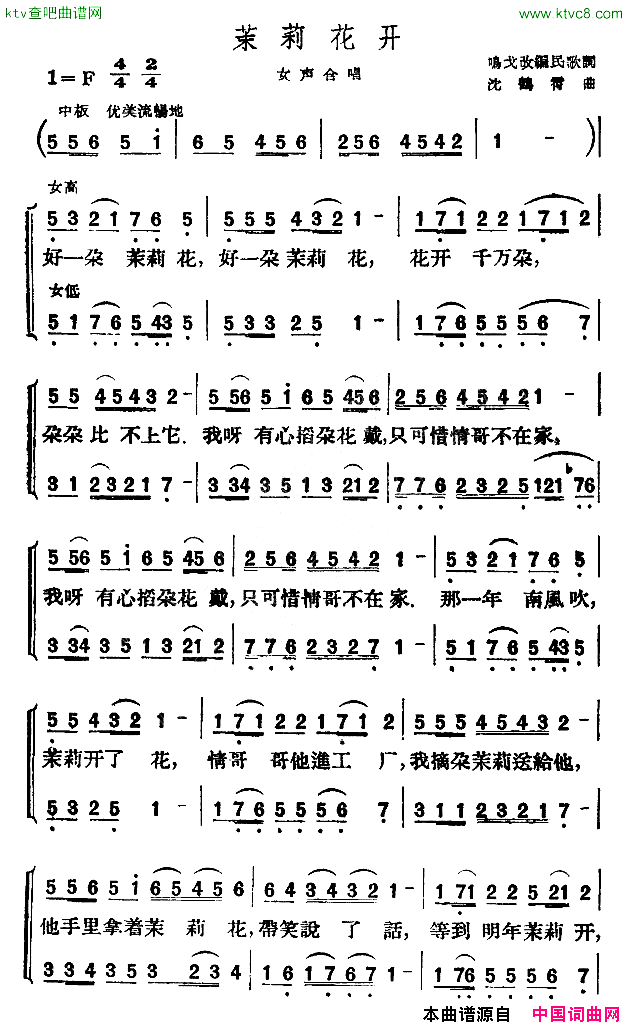 ktv查吧曲谱网
www.ktvc8.com
茉莉花开
1=F 4/4 2/4
女声合唱
鳴戈改編民歌詞
沈鶴霄 曲
中板 优美流暢地
(5 5 6 5 i | 6 5 4 5 6 | 2 5 6 4 5 4 2 | 1 - )|
女高
5 3 2 1 7 6 5 | 5 5 5 4 3 2 1 - | 1 7 1 2 2 1 7 1 2 |
好一朵 茉莉花, 好一朵茉莉花, 花开 千万朵,
女低
5 1 7 6 5 4 3 5 | 5 3 3 2 5 1 - | 1 7 6 5 5 5 6 7 |
5 5 4 5 4 3 2 - | 5 5 6 5 i 6 5 4 5 6 | 2 5 6 4 5 4 2 1 - |
朵朵比 不上它. 我呀 有心掐朵花 戴,只可惜情哥不在家。
3 1 2 3 2 1 7 - | 3 3 4 3 5 1 3 2 1 2 | 7 7 6 2 3 2 5 1 2 1 ♭7 6 |
5 5 6 5 i 6 5 4 5 6 | 2 5 6 4 5 4 2 1 - | 5 3 2 1 7 6 5 |
我呀 有心掐朵花 戴,只可惜情哥不在 家. 那一年 南風吹,
3 3 4 3 5 1 3 2 1 2 | 7 7 6 2 3 2 7 1 - | 5 1 7 6 5 4 3 5 |
5 5 4 3 2 1 - | 1 7 1 2 2 1 7 1 2 | 5 5 5 4 5 4 3 2 - |
茉莉开了 花, 情哥 哥他進工 厂,我摘朵茉莉送給他,
5 3 2 5 1 - | 1 7 6 5 5 5 6 7 | 3 1 1 2 3 2 1 7 - |
5 5 6 5 i 6 5 4 5 6 | 6 4 3 4 3 2 1 - | 1 7 1 2 2 5 2 1 2 |
他手里拿着茉 莉 花,帶笑說 了 話, 等到 明年茉莉 开,
3 3 4 3 5 3 2 3 4 | 1 7 6 7 6 5 1 - | 1 7 6 5 5 5 6 7 |
本曲谱源自 中国词曲网